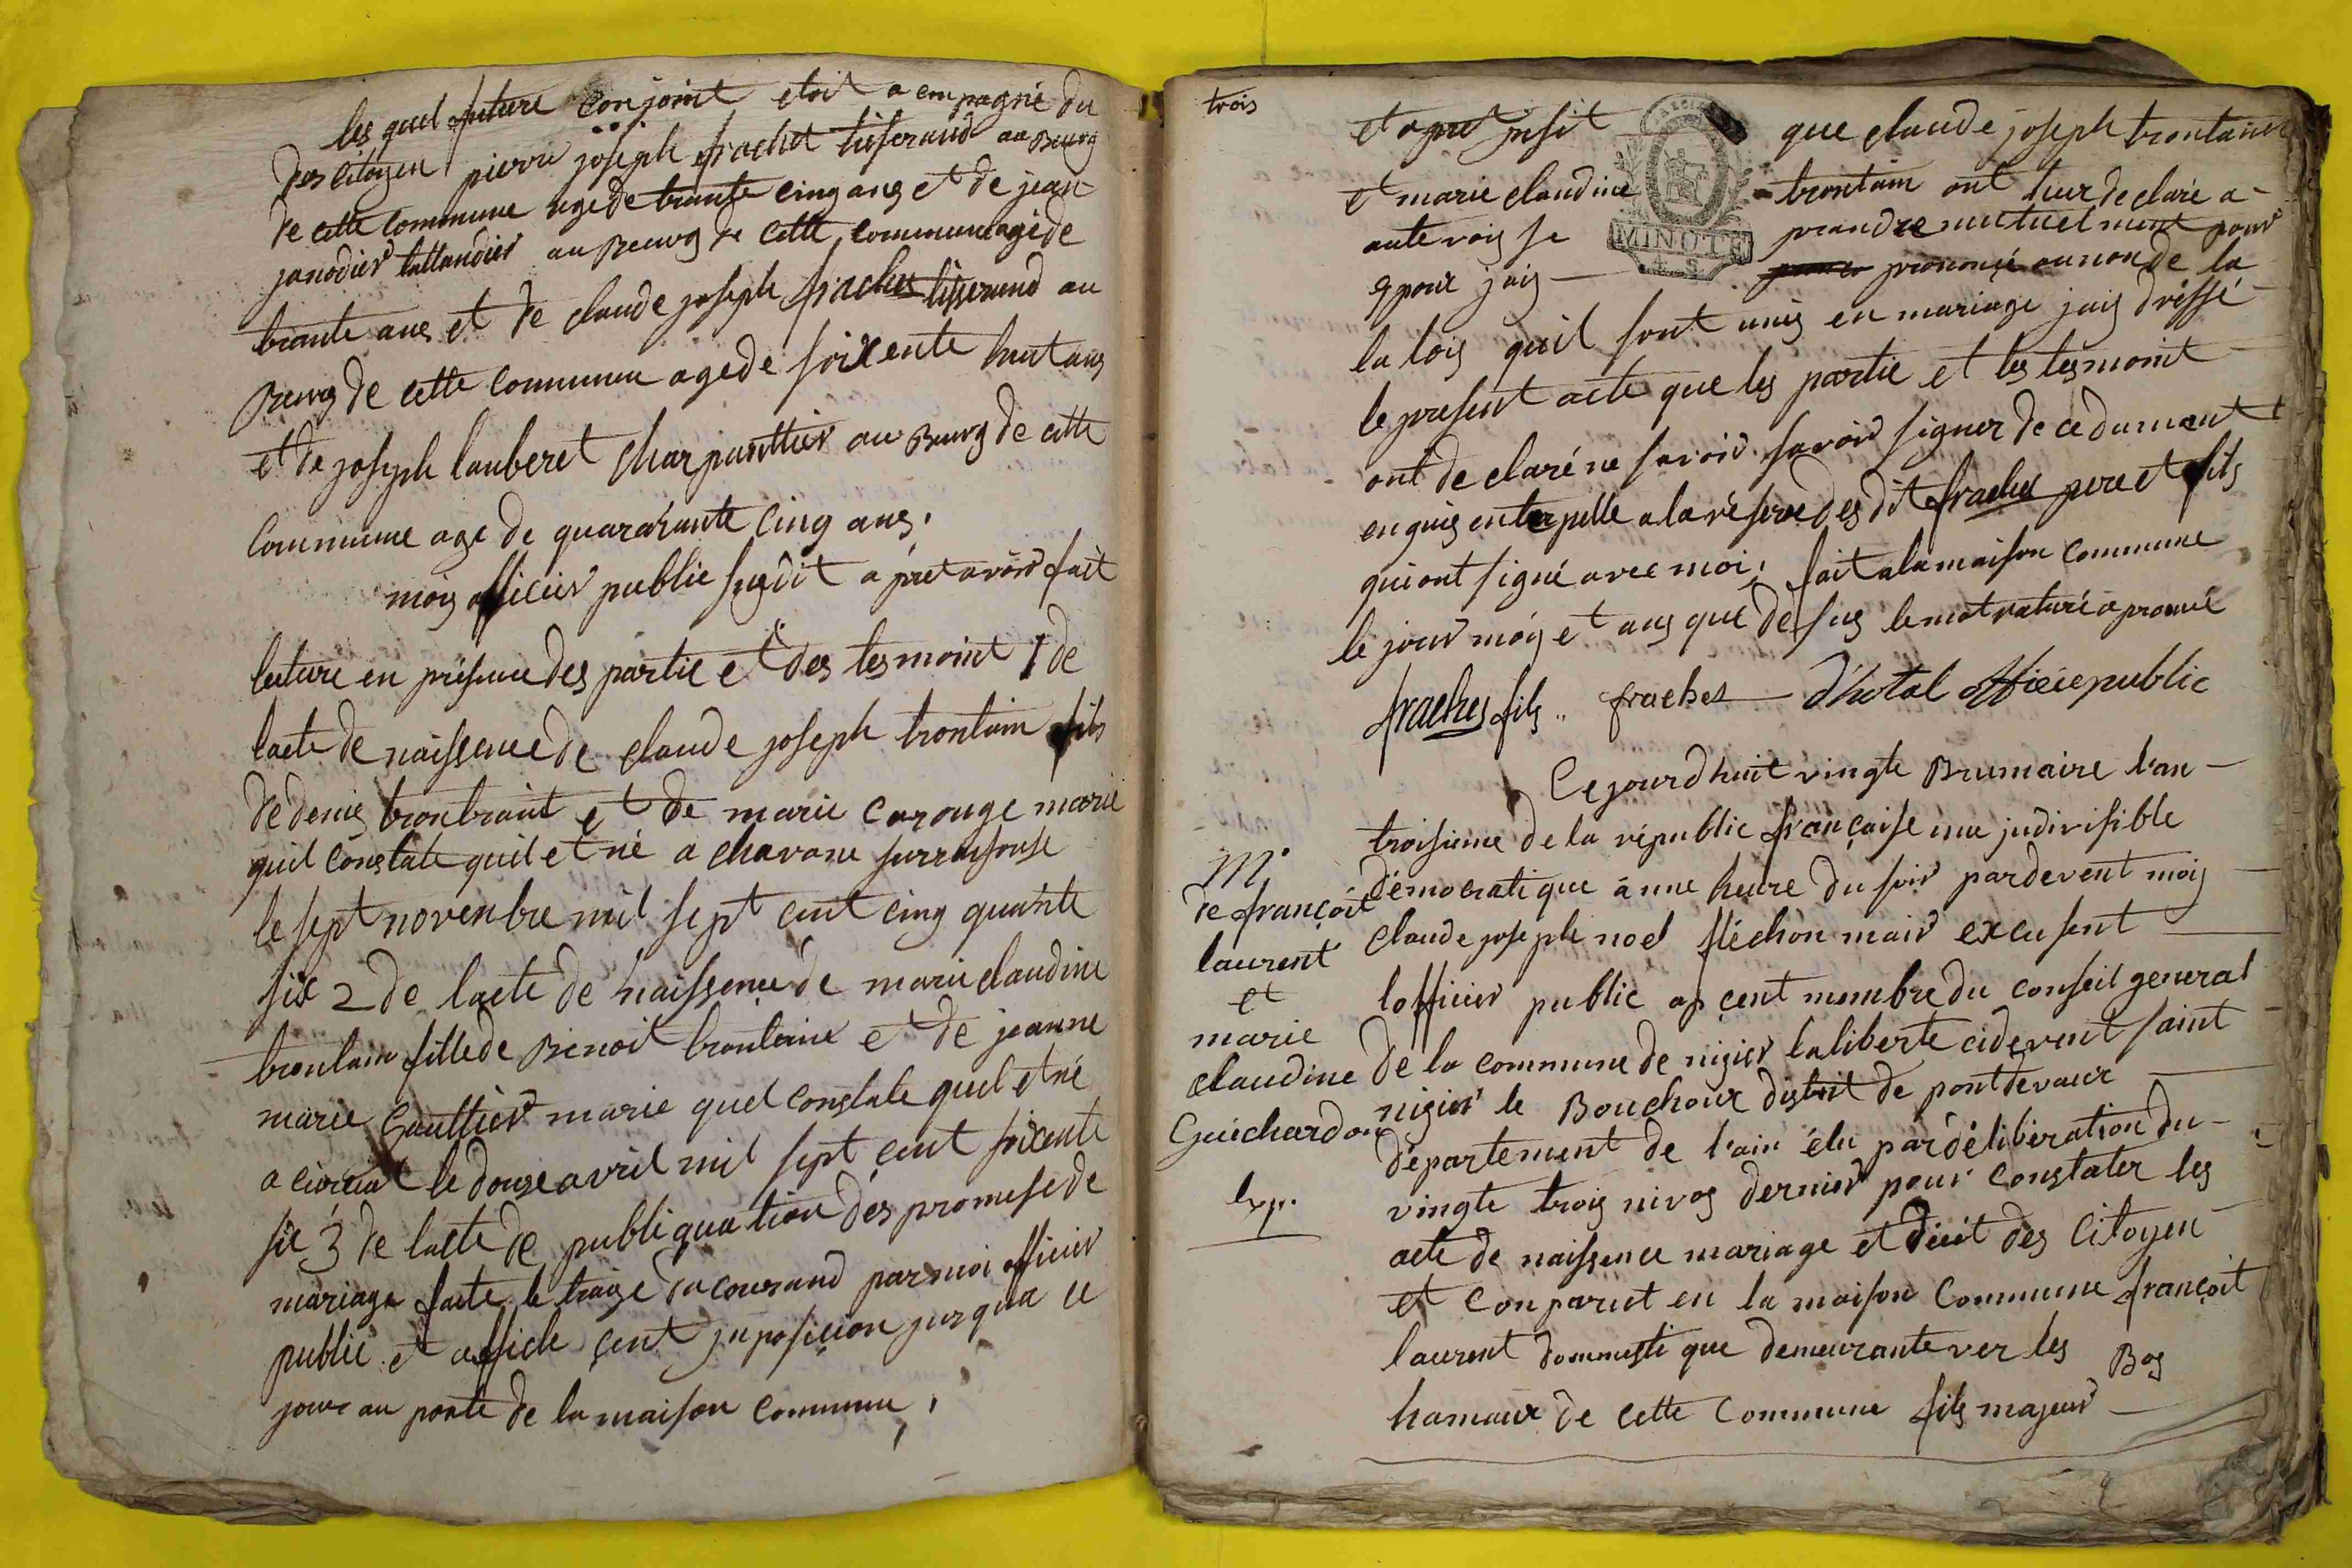 les quel future conjoint etoit a conpagné du
des citoyen pierre joseph frachet tisserand au Bourg
de cette commune age de trante cinq ans et de jean
janodier tallandier au Bourg de cette commune agé de
trante ans et de claude joseph frachet tisserand au
Bourg de cette commune age de soixente huit ans
et de joseph lauberet charpanttier au Bourg de cette
commune age de quararante cinq ans.
mois officier public susdit apret avoir fait
lecture en présence des partie et des tesmoint 1 de
lacte de naissence de claude joseph trontain fils
de denis trontaint et de marie carouge marie
quil constate quil et né a chavane surraisouse
le sept novenbre mil sept cent cinq quante
six 2 de lacte de naissence de marie claudine
trontain fille de Benoit trontaine et de jeanne
marie Gauttier marie quel constate quel et né
a le douze avril mil sept cent soixente
six 3 de lacte de publiquation des promese de
mariage faite le traize du courand par moi officier
public et affiche cent jnposicion jusqua ce
jour au porte de la maison commune,
trois
et apret jnsit que claude joseph trontaine
MINUTE
et marie claudine trontain ont leur declaré a
aute vois se prandre mutuel ment pour
epoux jais prononcé au non de la
la lois quil sont unis en mariage jais dréssé
le present acte que les partie et les tesmoint
ont de claré ne savoir savoir signer de ce dumant
enquis enterpelle a la réserve des dit frachet pere et fils
qui ont signé avec moi, fait a la maison commune
le jour mois et ans que dessus le mot raturé aprouvé
frachet fils frachet d'hotal officie public
Ce jourdhuit vingte Brumaire l'an
troisieme de la républic française une jndivisible
démocratique à une heure du soir pardevent mois
claude joseph noel fléchon mair excusent
lofficier public apcent membre du conseil general
de la commune de nizier la liberte cidevent saint
nizier le Bouchoux distrit de pontdevaux
département de l'ain élu par délibération du
vingte trois nivos dernier pour constater les
acte de naissence mariage et décit des Citoyen
et conparut en la maison Commune françoit
laurent dommestique demeurante ver les Bos
hamaux de cette Commune fils majeur
M.
de françoit
laurent
et
marie
claudine
Guichardon
Exp.